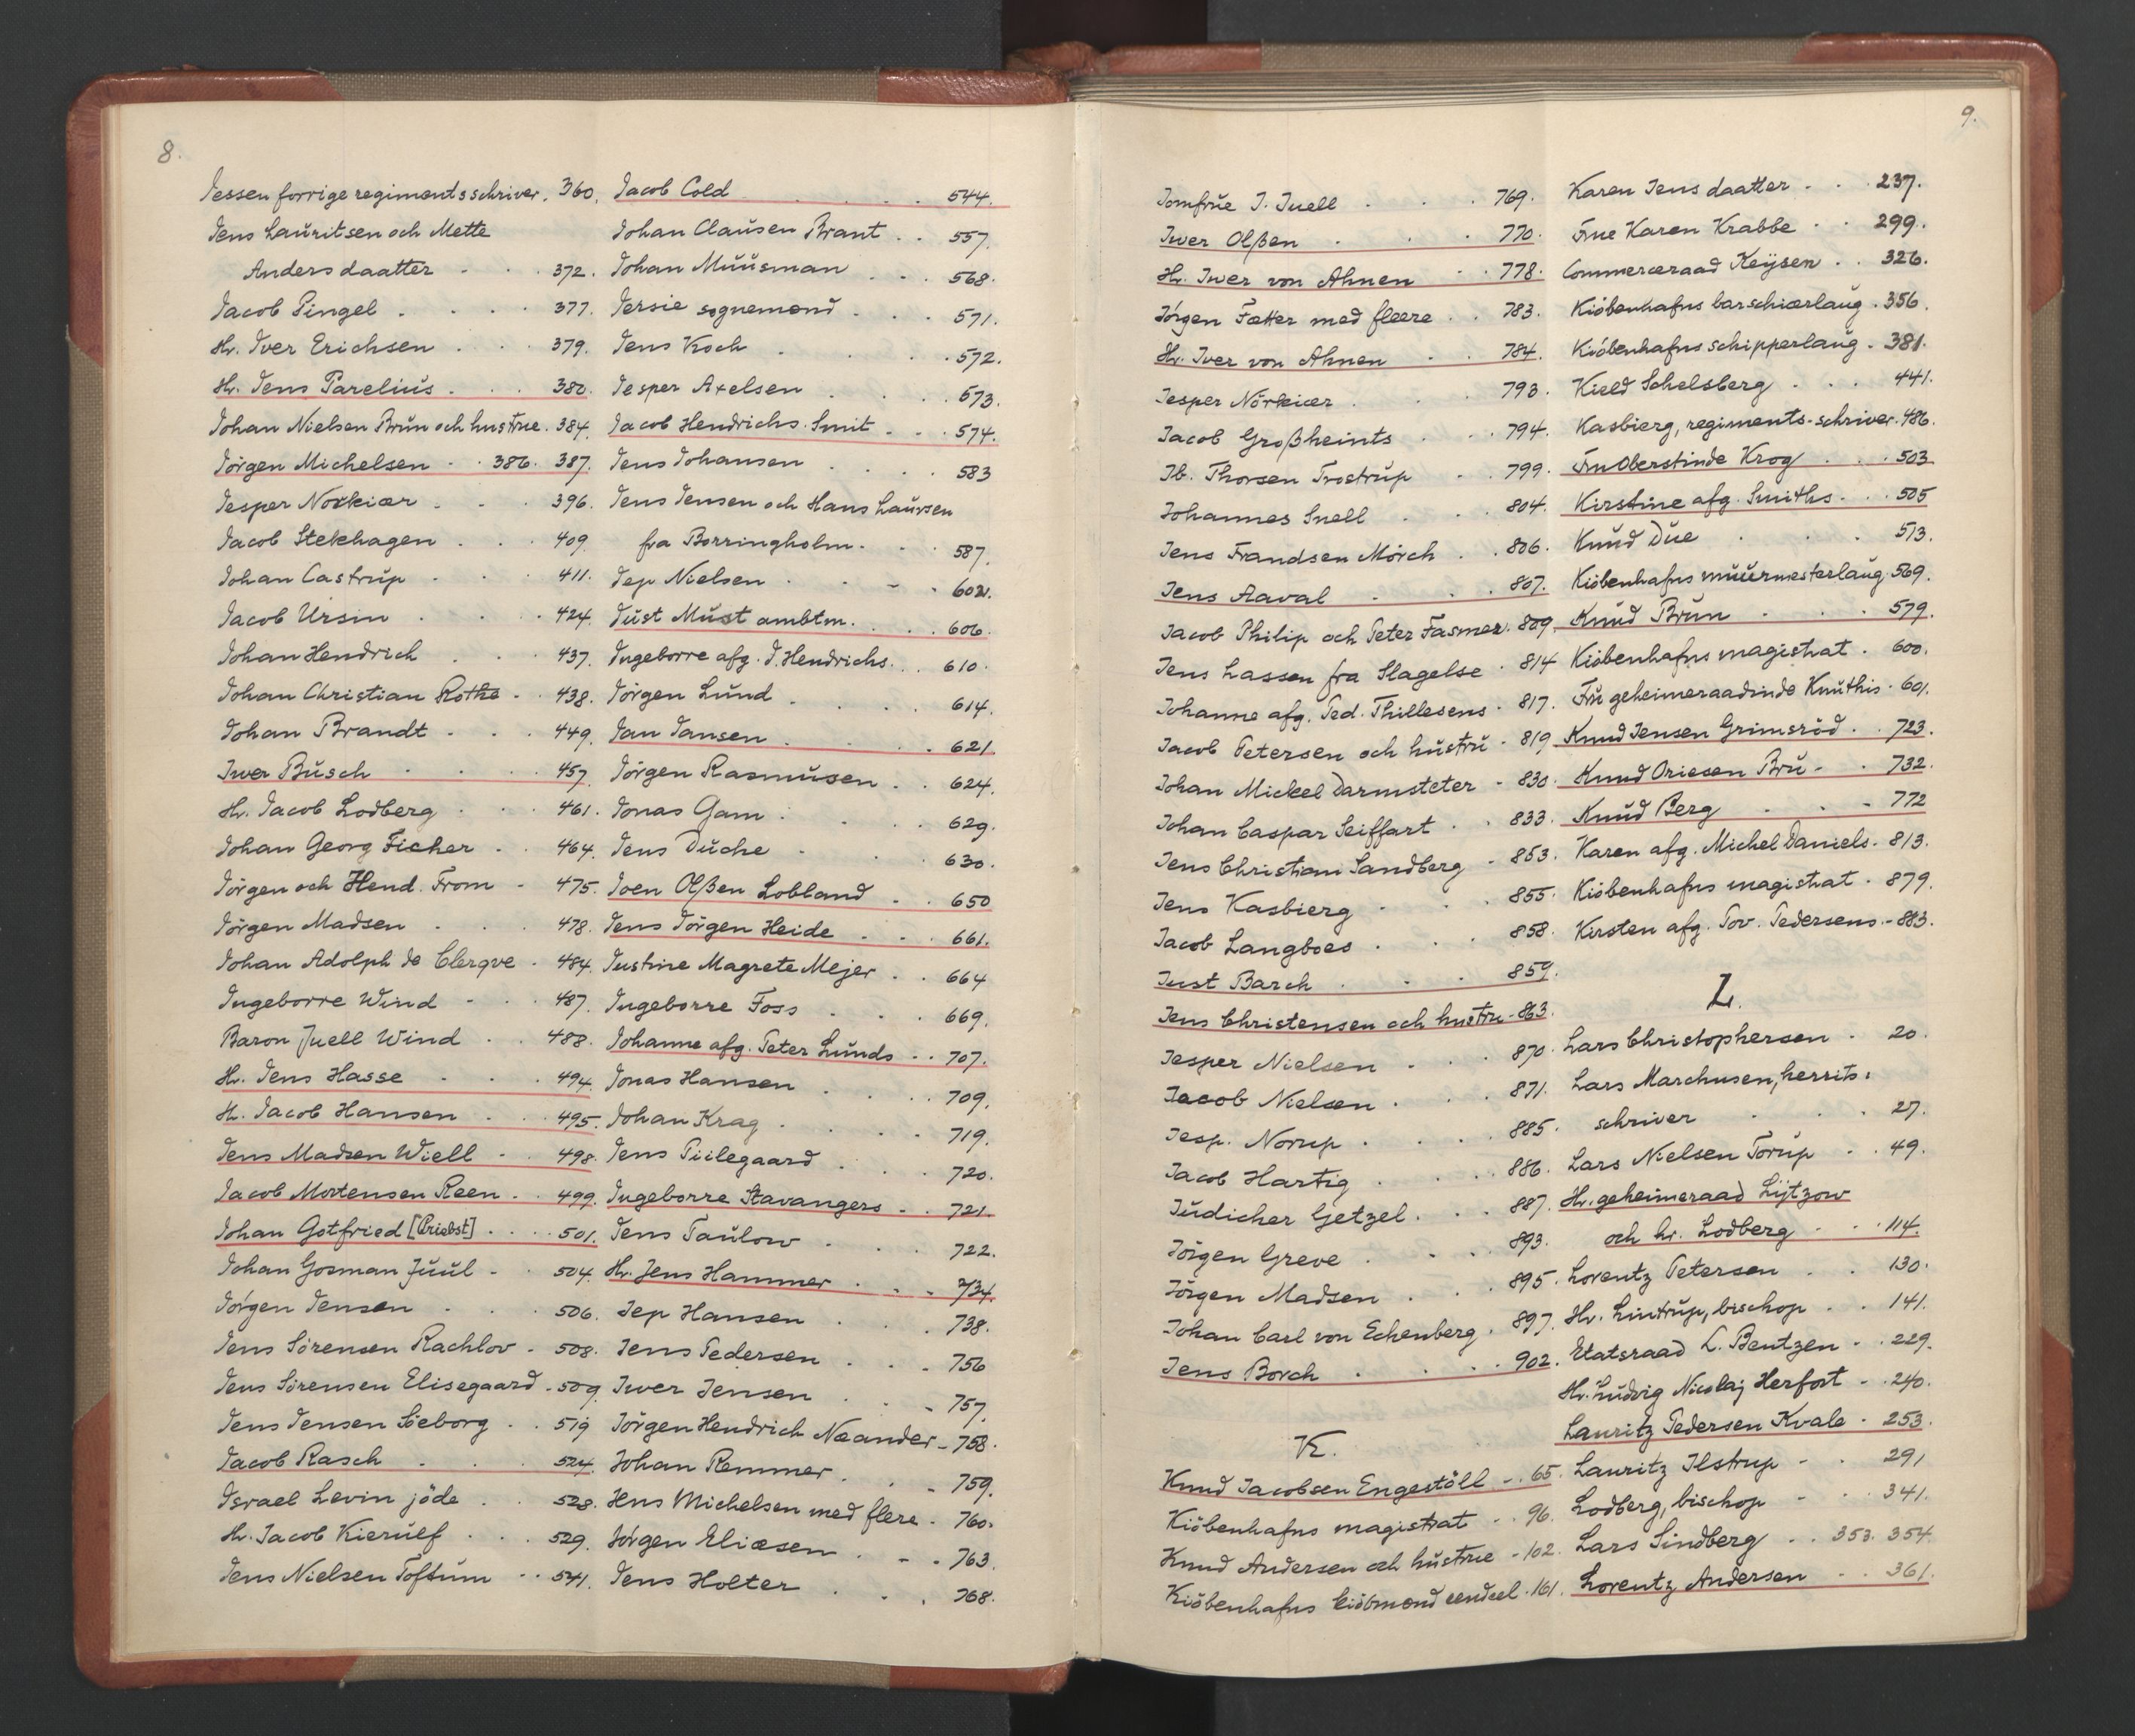 8.
Jessen forrige regimentsschriver. 360.
Jens Lauritsen och Mette
Anders daatter - . . 372.
Jacob Pingel . . . . 377.
Hr. Iver Erichsen . . . 379.
Hr. Jens Parelius . . . 380.
Johan Nielsen Brün och hustrue. 384.
Jörgen Michelsen - . 386. 387.
Jesper Norkiær . . . 396.
Jacob Stekhagen . . . 409.
Johan Castrüp . . . 411.
Jacob Ursin . . . . 424.
Johan Hendrich . . . 437.
Johan Christian Rothe - . 438.
Johan Brandt . . . 449.
Iwer Büsch . . . . 457.
Hr. Jacob Lodberg . . . 461.
Johan Georg Ficher . . 464.
Jörgen och Hend. From - 475.
Jörgen Madsen . . . 478.
Johan Adolph de Clerqve - 484.
Ingeborre Wind - . . 487.
Baron Juell Wind . . 488.
Hr. Jens Hasse . . . 494.
H. Jacob Hansen . . . 495.
Jens Madsen Wiell - . 498.
Jacob Mortensen Reen . . 499.
Johan Gotfried [Priebst] . . . 501.
Johan Gosman Juul - . 504.
Jörgen Jensen . . . 506.
Jens Sörensen Rachlov - 508.
Jens Sörensen Elisegaard . 509.
Jens Jensen Seborg . . 519
Jacob Rasch . . . 524.
Israel Levin jöde . . 528.
Hr. Jacob Kierulf . . . 529.
Jens Nielsen Toftum . . 541.
Jacob Cold . . . . 544.
Johan Clausen Brant . . 557.
Johan Muüsman . . . 568.
Jersie sognemænd . . . 571.
Jens Koch . . . . 572.
Jesper Axelsen . . . 573.
Jacob Hendrichs. Smit - . . 574.
Jens Johansen . . . . 583
Jens Jensen och Hans Laursen
fra Borringholm . . . 587.
Jep Nielsen . . - . 602.
Just Must ambtm. . . . 606.
Ingeborre afg. J. Hendrichs. . . 610.
Jörgen Lund . . . . 614.
Jan Jansen . . . . 621.
Jörgen Rasmüsen . . 624.
Jonas Gam . . . . 629.
Jens Düche . . . 630.
Joen Olßen Lobland - . 650
Jens Jörgen Heide . . . 661.
Justine Magrete Mejer . . 664
Ingeborre Foss . . . 669.
Johanne afg. Peter Lunds - . 707.
Jonas Hansen . . . . 709.
Johan Krag . . . . 719.
Jens Piilegaard . . . 720.
Ingeborre Stavangers - . 721.
Jens Paulow . . . 722.
Hr. Jens Hammer . . . 734.
Jep Hansen . . . 738.
Jens Pedersen . . . 756
Iwer Jensen . . . 757.
Jörgen Hendrich Neander - 758.
Johan Remmer . . . 759.
Jens Michelsen med flere . 760.
Jörgen Eliæsen . - . 763.
Jens Holter . . . 768.
9.
Jomfrüe J. Juell . . . 769.
Iwer Olßen . . . 770.
Hr. Iwer von Ahnen . . 778.
Jörgen Fætter med fleere . . 783.
Hr. Iver von Ahnen . . 784.
Jesper Nörkiær . . . 793.
Jacob Großheints . . . 794.
Ib. Thorsen Trostrüp . . 799.
Johannes Snell . . . 804.
Jens Frandsen Mörch . . 806.
Jens Aaval . . . 807.
Jacob Philip och Peter Fasmer. 809.
Jens Lassen fra Slagelse . 814
Johanne afg. Ped. Thillesens - 817.
Jacob Petersen och hüstrü - 819
Johan Mickel Darmsteter - 830.
Johan Caspar Seiffart . . 833.
Jens Christian Sandberg - 853.
Jens Kasbierg . . . 855.
Jacob Langboes . . . 858.
Just Barch . . . 859.
Jens Christensen och hustru - 863.
Jesper Nielsen . . . 870.
Jacob Nielsen . . . 871.
Jesp. Norup . . . . 885.
Jacob Hartig . . . . 886.
Jüdicher Getzel . . . 887.
Jörgen Greve . . . . 893.
Jörgen Madsen . . . 895.
Johan Carl von Echenberg . 897.
Jens Borch . . . . 902.
K.
Knud Jacobsen Engestöll - . 65.
Kiöbenhafns magistrat - . 96.
Knud Andersen och hüstrue - 102.
Kiöbenhafns kiöbmænd eendeel . 161.
Karen Jens daatter . . . 237.
Frue Karen Krabbe . . 299.
Commerceraad Keÿsen . . 326.
Kiöbenhafns barschiærlaug . 356.
Kiöbenhafns schipperlaüg . 381.
Kield Schelsberg . . . 441.
Kasbierg, regiments-schriver. 486.
Fru Oberstinde Krog . . . 503
Kirstine afg. Smiths . . . 505
Knüd Düe . . . 513.
Kiöbenhafns müürmesterlaug. 569.
Knüd Brün . . . 579.
Kiöbenhafns magistrat . 600.
Frü geheimeraadinde Knuthis . 601.
Knud Jensen Grimsröd . . 723.
Knud Oriesen Brü - . 732.
Knüd Berg . . - 772
Karen afg. Michel Daniels - 813.
Kiöbenhafns magistrat . 879.
Kirsten afg. Pov. Pedersens . - 883.
L.
Lars Christophersen . 20.
Lars Marchusen, herrits:
schriver . . . 27.
Lars Nielsen Torüp . . 49.
Hr. geheimeraad Lÿtzow
och hr. Lodberg . . . 114.
Lorentz Petersen . . 130.
Hr. Lintrüp, bischop . . 141.
Etatsraad L. Bentzen . . 229.
Hr. Lüdvig Nicolaj Herfort - . 240.
Lauritz Pedersen Kvale . 253.
Lauritz Ilstrup - . 291
Lodberg, bischop - . . 341.
Lars Lindberg . . 353. 354
Lorentz Andersen . . 361.